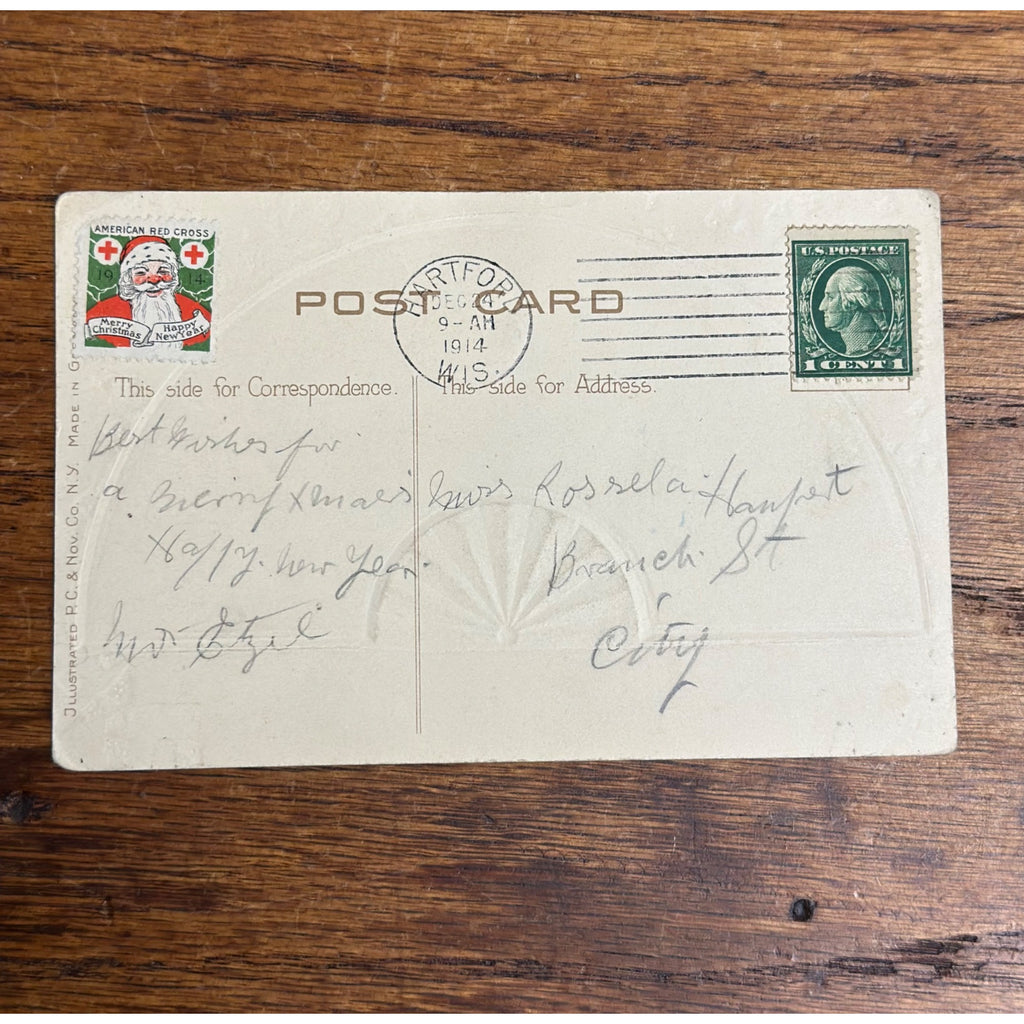 AMERICAN RED CROSS
19 14
Merry Christmas
Happy New Year
POST CARD
HARTFORD
DEC 24
9-AM
1914
WIS.
U.S. POSTAGE
1 CENT 1
This side for Correspondence.
This side for Address.
Best Wishes for
a Merry Xmas
Happy. New Year.
Etzel
Miss Rossela
Branch St
City
ILLUSTRATED P.C. & NOV. CO. N.Y. MADE IN